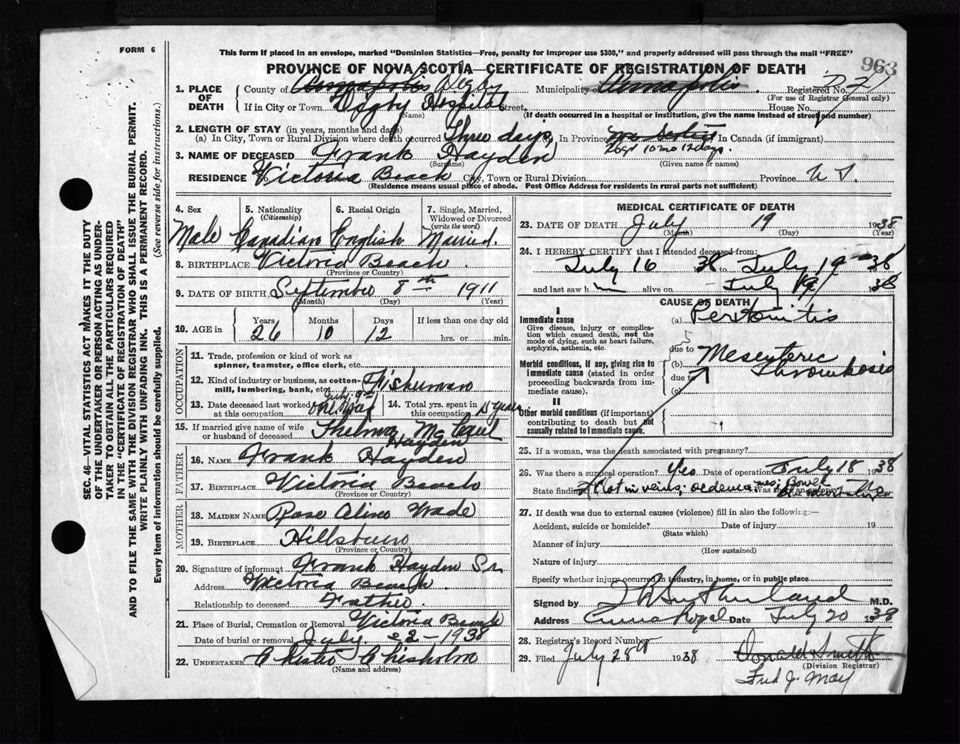 FORM 6
This form if placed in an envelope, marked "Dominion Statistics—Free, penalty for improper use $300," and properly addressed will pass through the mail "FREE"
PROVINCE OF NOVA SCOTIA—CERTIFICATE OF REGISTRATION OF DEATH
963
1. PLACE OF DEATH
County of Annapolis Digby Municipality of Annapolis Registered No.
(For use of Registrar General only)
If in City or Town Digby Hospital Street. House No.
(Name) (If death occurred in a hospital or institution, give the name instead of street and number)
2. LENGTH OF STAY (in years, months and days)
(a) In City, Town or Rural Division where death occurred Three days In Province Nova Scotia In Canada (if immigrant)
26 yr 10 mo 12 days.
3. NAME OF DECEASED Frank Hayden
(Surname) (Given name or names)
RESIDENCE Victoria Beach City, Town or Rural Division Province N S.
(Residence means usual place of abode. Post Office Address for residents in rural parts not sufficient)
4. Sex 5. Nationality (Citizenship) 6. Racial Origin 7. Single, Married, Widowed or Divorced (write the word)
Male Canadian English Married.
8. BIRTHPLACE Victoria Beach
(Province or Country)
9. DATE OF BIRTH September 8th 1911
(Month) (Day) (Year)
10. AGE in Years Months Days If less than one day old
26 10 12 hrs. or min.
OCCUPATION
11. Trade, profession or kind of work as spinner, teamster, office clerk, etc.
12. Kind of industry or business, as cotton-mill, lumbering, bank, etc. Fisherman
13. Date deceased last worked at this occupation July 9th 14. Total yrs. spent in this occupation years
15. If married give name of wife or husband of deceased Thelma Hayden
FATHER
16. Name Frank Hayden
17. Birthplace Victoria Beach
(Province or Country)
MOTHER
18. Maiden Name Rose Wade
19. Birthplace Hillsburn
(Province or Country)
20. Signature of informant Frank Hayden Sr.
Address Victoria Beach
Relationship to deceased Father.
21. Place of Burial, Cremation or Removal Victoria Beach
Date of burial or removal July 22 - 1938
22. UNDERTAKER Chisholm
(Name and address)
MEDICAL CERTIFICATE OF DEATH
23. DATE OF DEATH July 19 1938
(Month) (Day) (Year)
24. I HEREBY CERTIFY that I attended deceased from:
July 16 38 to July 19 38
and last saw h alive on July 19 38
CAUSE OF DEATH
I
Immediate cause (a) Peritonitis
Give disease, injury or complication which caused death, not the mode of dying, such as heart failure, asphyxia, asthenia, etc.
due to
Morbid conditions, if any, giving rise to immediate cause (stated in order proceeding backwards from immediate cause).
(b) Mesenteric Thrombosis
due to
(c)
II
Other morbid conditions (if important) contributing to death but not causally related to immediate cause.
25. If a woman, was the death associated with pregnancy?
26. Was there a surgical operation? Yes Date of operation July 18 1938
State findings Clot in veins; oedema Bowel
27. If death was due to external causes (violence) fill in also the following:—
Accident, suicide or homicide? Date of injury 19
(State which)
Manner of injury
(How sustained)
Nature of injury
Specify whether injury occurred in industry, in home, or in public place
Signed by Sutherland M.D.
Address Annap Royal Date July 20 1938
28. Registrar's Record Number
29. Filed July 28th 1938 Donald Smith
(Division Registrar)
Fred J. May
SEC. 46—VITAL STATISTICS ACT MAKES IT THE DUTY
OF THE UNDERTAKER OR PERSON ACTING AS UNDER-
TAKER TO OBTAIN ALL THE PARTICULARS REQUIRED
IN THE "CERTIFICATE OF REGISTRATION OF DEATH"
AND TO FILE THE SAME WITH THE DIVISION REGISTRAR WHO SHALL ISSUE THE BURIAL PERMIT.
WRITE PLAINLY WITH UNFADING INK. THIS IS A PERMANENT RECORD.
Every item of information should be carefully supplied. (See reverse side for instructions.)